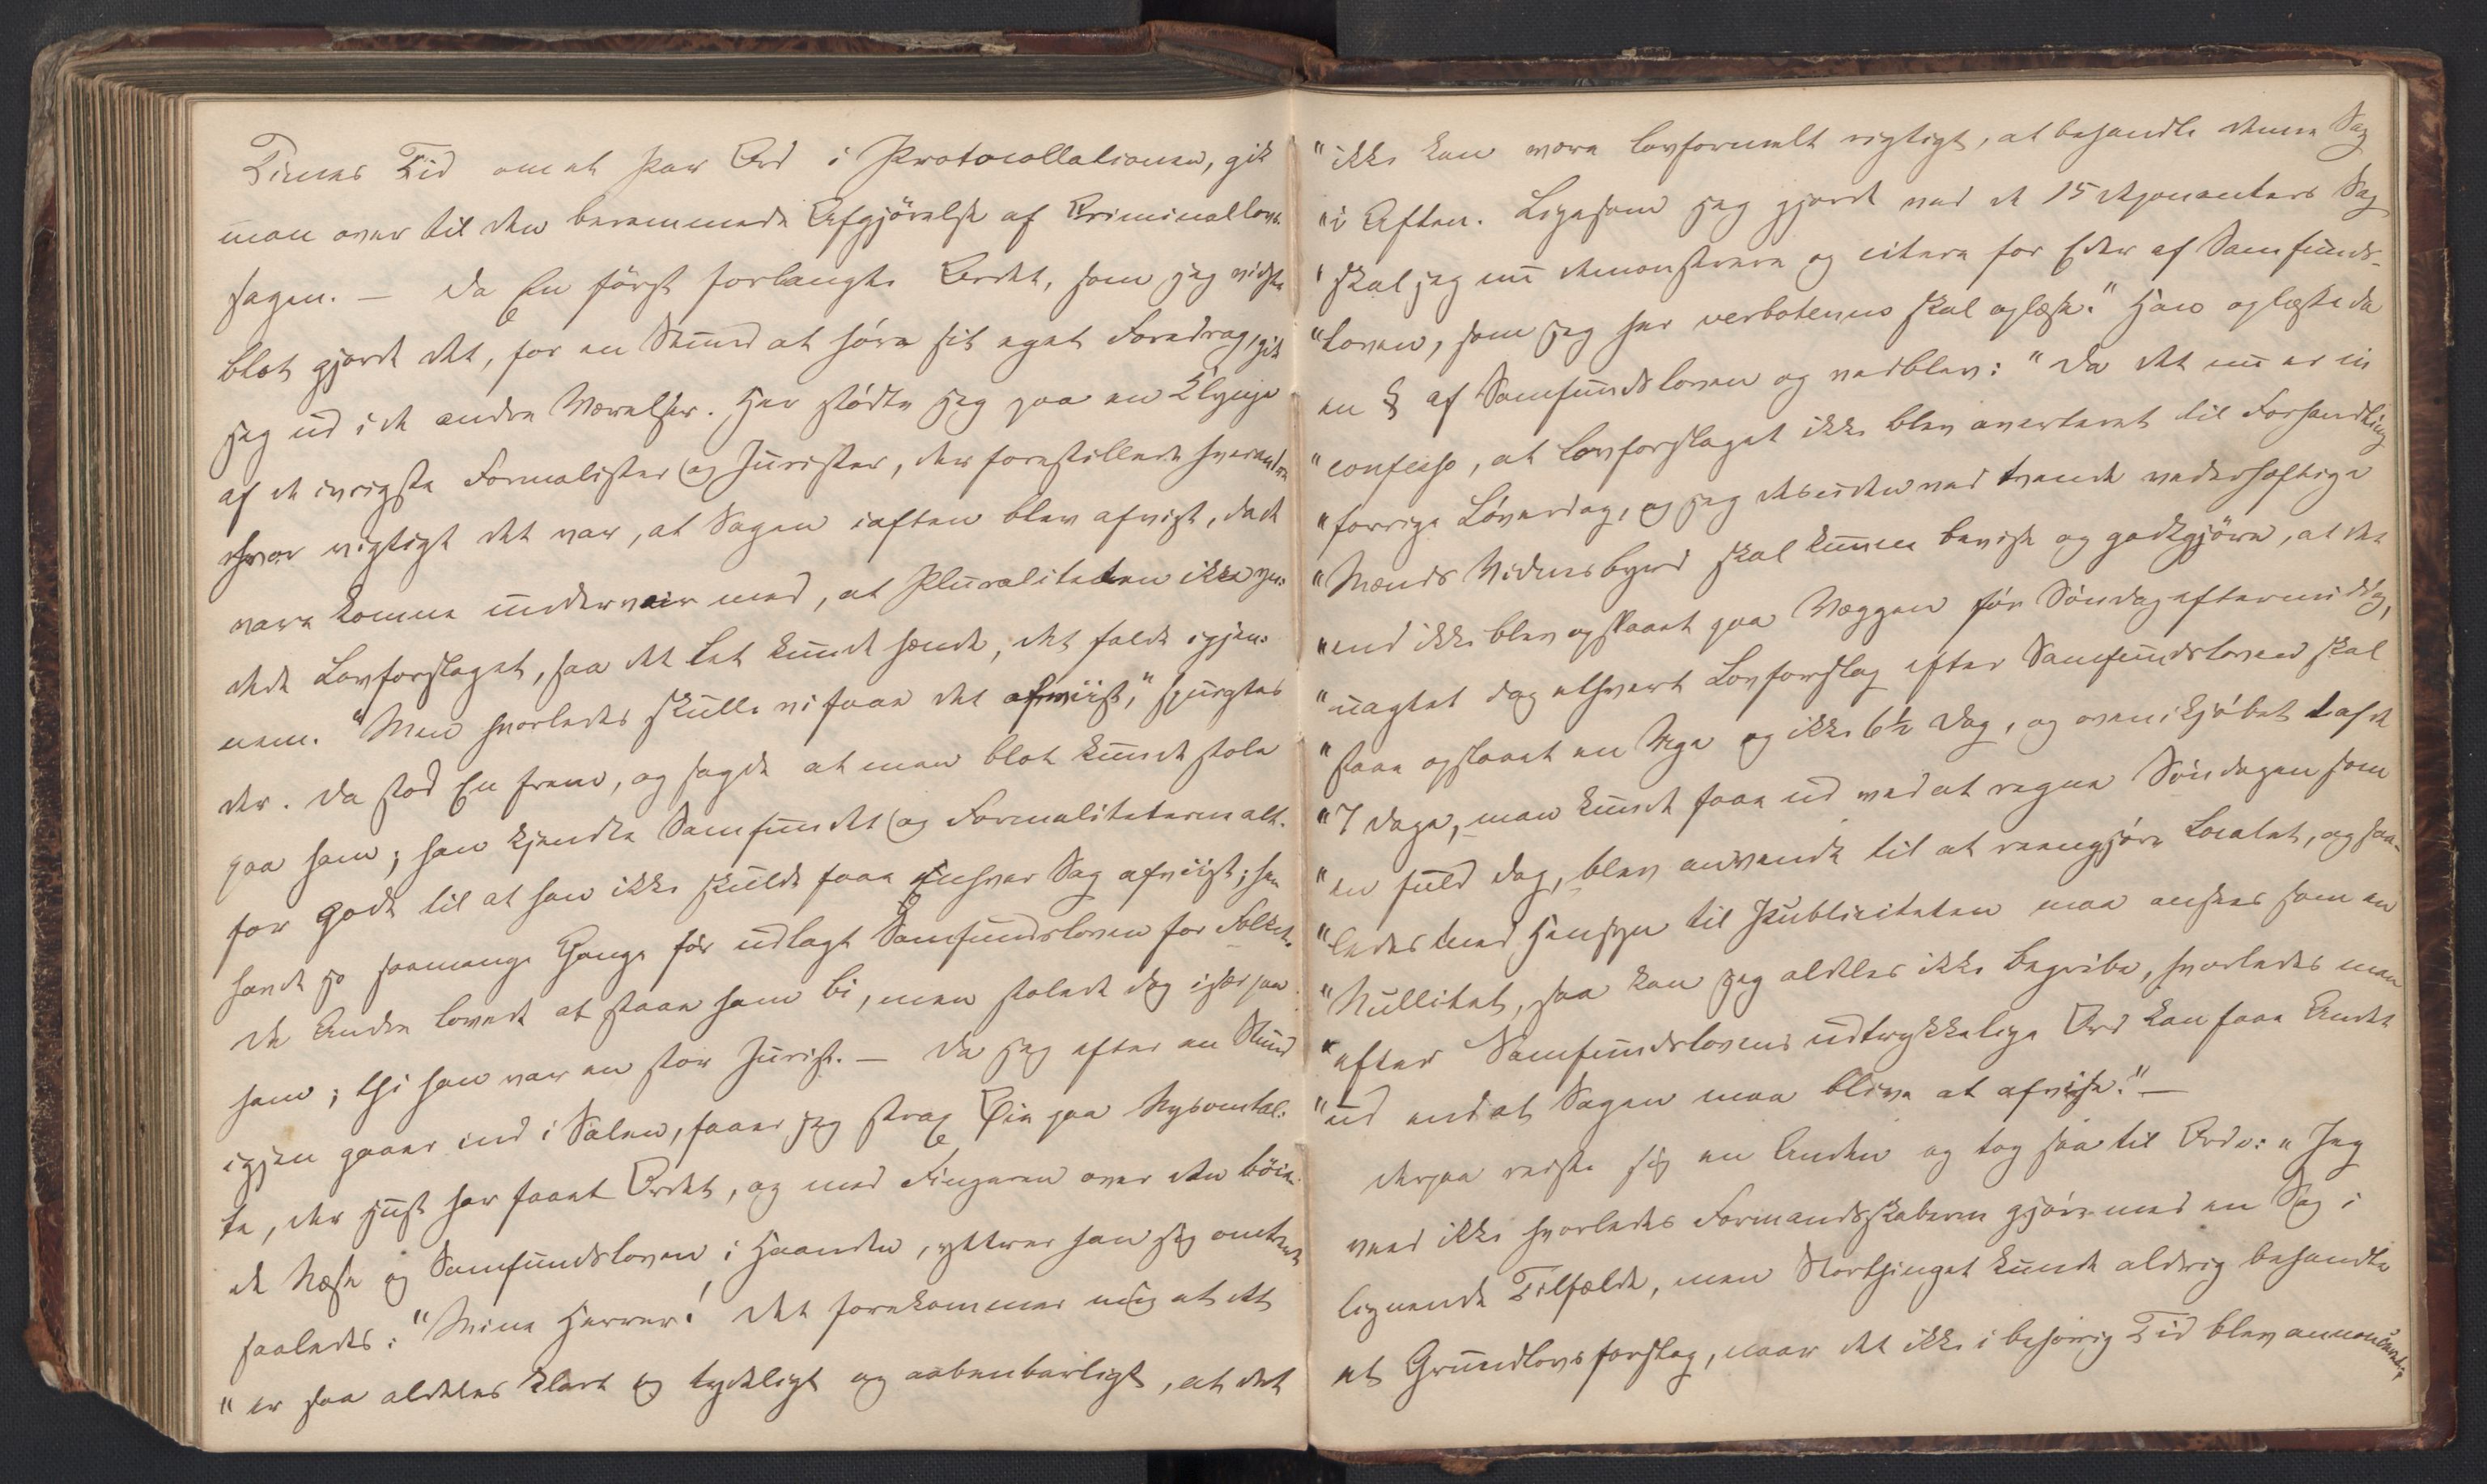 Times Tid om et Par Ord i Protocollationen, gik
man over til den berammede Afgjörelse af Criminallovs
sagen. — Da En först forlangte Ordet, som jeg vidste
blot gjorde det, for en Stund at höre sit eget Foredrag, gik
jeg ud i de andre Værelser. Her stödte jeg paa en Klynge
af de ivrigste Formalister og Jurister, der forestillede hverandre
hvor vigtigt det var, at Sagen iaften blev afvist, da de
vare komne underveir med, at Pluraliteten ikke yn-
dede Lovforslaget, saa det let kunde hænde, det faldt igjen-
nem. "Men hvorledes skulle vi faae det afviist," spurgtes
der. Da stod En frem, og sagde at man blot kunde stole
paa ham; han kjendte Samfundet og Formaliteterne alt-
for godt til at han ikke skulde faae enhver Sag afviist; han
havde jo saamange Gange för udlagt Samfundsloven for Folket.
De Andre lovede at staae ham bi, men stolede dog især paa
ham; thi han var en stor Jurist. — Da jeg efter en Stund
igjen gaaer ind i Salen, faaer jeg strax Öie paa Nysomtal-
te, der just har faaet Ordet, og med Fingeren over den böie-
de Næse og Samfundsloven i Haanden, yttrer han sig omtrent
saaledes: "Mine Herrer! Det forekommer mig at det
"er saa aldeles klart og tydeligt og aabenbarligt, at det
"ikke kan være lovformelt rigtigt, at behandle denne Sag
"i Aften. Ligesom jeg gjorde ved de 15 Deponenters Sag
"skal jeg nu demonstrere og citere for Eder af Samfunds-
"loven, som jeg her verbotenus skal oplæse." Han oplæste da
en § af Samfundsloven og vedblev: "Da det nu er in
"confesso, at Lovforslaget ikke blev averteret til Forhandling
"forrige Löverdag, og jeg desuden ved tvende vederhæftige
"Mænds Vidnesbyrd skal kunne bevise og godtgjöre, at det
"end ikke blev opslaaet paa Væggen för Söndag eftermiddag,
"uagtet dog ethvert Lovforslag efter Samfundsloven skal
"staae opslaaet en Uge og ikke 6½ Dag, og ovenikjöbet 1 af de
"7 Dage, man kunde faae ud ved at regne Söndagen som
"en fuld Dag, blev anvendt til at reengjöre Localet, og saa-
"ledes med Hensyn til Publiciteten maa ansees som en
"Nullitet, saa kan jeg aldeles ikke begribe, hvorledes man
"efter Samfundslovens udtrykkelige Ord kan faae Andet
"ud end at Sagen maa blive at afvise." —
Derpaa reiste sig en Anden og tog saa til Orde: "Jeg
veed ikke hvorledes Formandsskaberne gjöre med en Sag i
lignende Tilfælde, men Storthinget kunde aldrig behandle
et Grundlovsforslag, naar det ikke i behörig Tid blev annonceret,